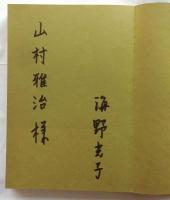 山村雅治様
海野光子